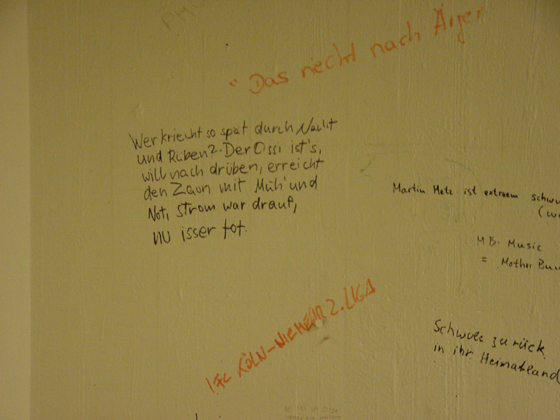 "Das riecht nach Ärger
Wer kriecht so spät durch Nacht
und Rüben?. Der Ossi ist's,
will nach drüben, erreicht
den Zaun mit Müh' und
Not, Strom war drauf,
nu isser tot.
Martin Metz ist extrem schwu
MB. Music
= Mother
1. FC KÖLN - NIEMEHR 2. LIGA
Schwule zurück
in ihr Heimatland